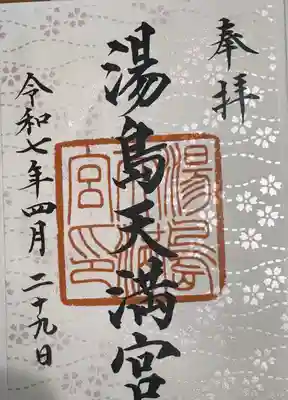 奉拝
湯島天満宮
湯島天満宮印
令和七年四月二十九日